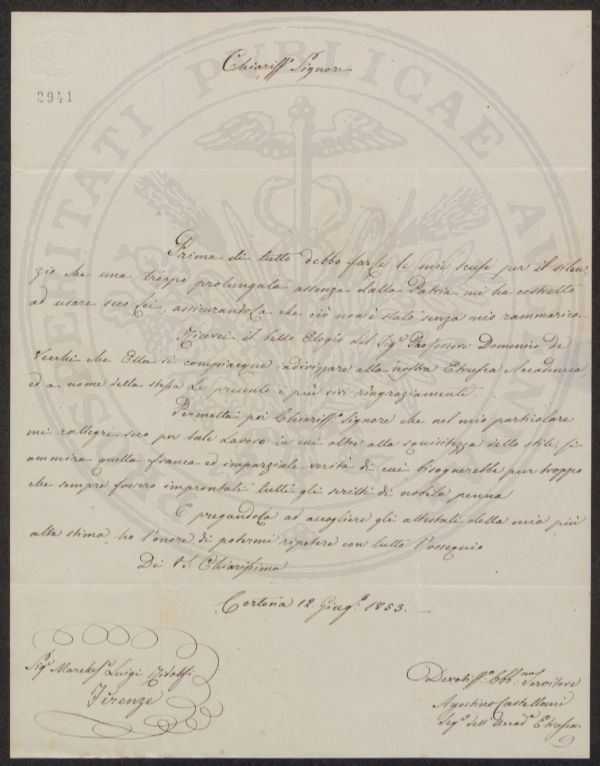 Chiariss.º Signore
2941
Prima di tutto debbo farle le mie scuse per il silen-
zio che una troppo prolungata assenza dalla Patria mi ha costretto
ad usare seco Lei, assicurandola che ciò non è stato senza mio rammarico.
Ricevei il bello Elogio del Sig.r Professore Domenico de
Vecchi che Ella si compiacque indirizzare alla nostra Etrusca Accademia
ed a nome della stessa Le presento i più vivi ringraziamenti.
Permetta poi Chiariss.º Signore che nel mio particolare
mi rallegri seco per tale Lavoro in cui oltre alla squisitezza dello stile si
ammira quella franca ed imparziale verità di cui bisognerebbe pur troppo
che sempre fossero improntati tutti gli scritti di nobile penna
E pregandola ad accogliere gli attestati della mia più
alta stima, ho l'onore di potermi ripetere con tutto l'ossequio
Di V.S. Chiarissima
Cortona 12 Giug.º 1853.
Sig.r Marches.e Luigi Ridolfi
Firenze
Devotiss.º Obb.mo Servitore
Agostino Castellani
Seg.º dell'Accad.ª Etrusca